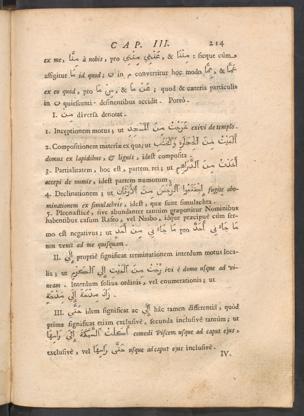 CAP. III. 214
ex me, مِنَّا à nobis, pro مِنْنِي, عَنْنِي, & مِنْنَا : sicque cùm
affigitur مَا id quod; ن in م convertitur hoc modo مِمَّا, & عَمَّا,
ex eo quod, pro مِنْ مَا, & عَنْ مَا; quod & cæteris particulis
in ن quiescunt. desinentibus accidit. Porrò.
I. مِن diversa denotat.
1. Inceptionem motus, ut خَرَجْتُ مِنَ exivi de templo.
2. Compositionem materiæ ex qua; ut
domus ex lapidibus, & lignis, idest composita.
3. Partialitatem, hoc est, partem rei; ut
accepi de numis, idest partem numorum.
4. Declinationem; ut اِجْتَنِبُوا الرِّجْسَ مِنَ الْأَوْثَانِ fugite abominationem
ex simulachris, idest, quæ sunt simulachra.
5. Pleonasticè, sive abundanter tantùm præponitur Nominibus
habentibus casum Rafso, vel Nasbo, idque præcipuè cùm sermo
est negativus; ut مَا جَاءَنِي مِنْ أَحَدٍ pro مَا جَاءَنِي أَحَدٌ
non venit ad me quisquam.
II. إِلَى propriè significat terminationem interdum motus localis;
ut مِنَ الْبَيْتِ إِلَى الْكَرْمِ ivi è domo usque ad vineam.
Interdum solius ordinis, vel enumerationis; ut
III. حَتَّى idem significat ac إِلَى hâc tamen differentiâ, quod
prima significat etiam exclusivè, secunda inclusivè tantùm; ut
أَكَلْتُ السَّمَكَةَ إِلَى رَأْسِهَا comedi piscem usque ad caput ejus,
exclusivè, vel حَتَّى رَأْسِهَا usque ad caput ejus inclusivè.
IV.